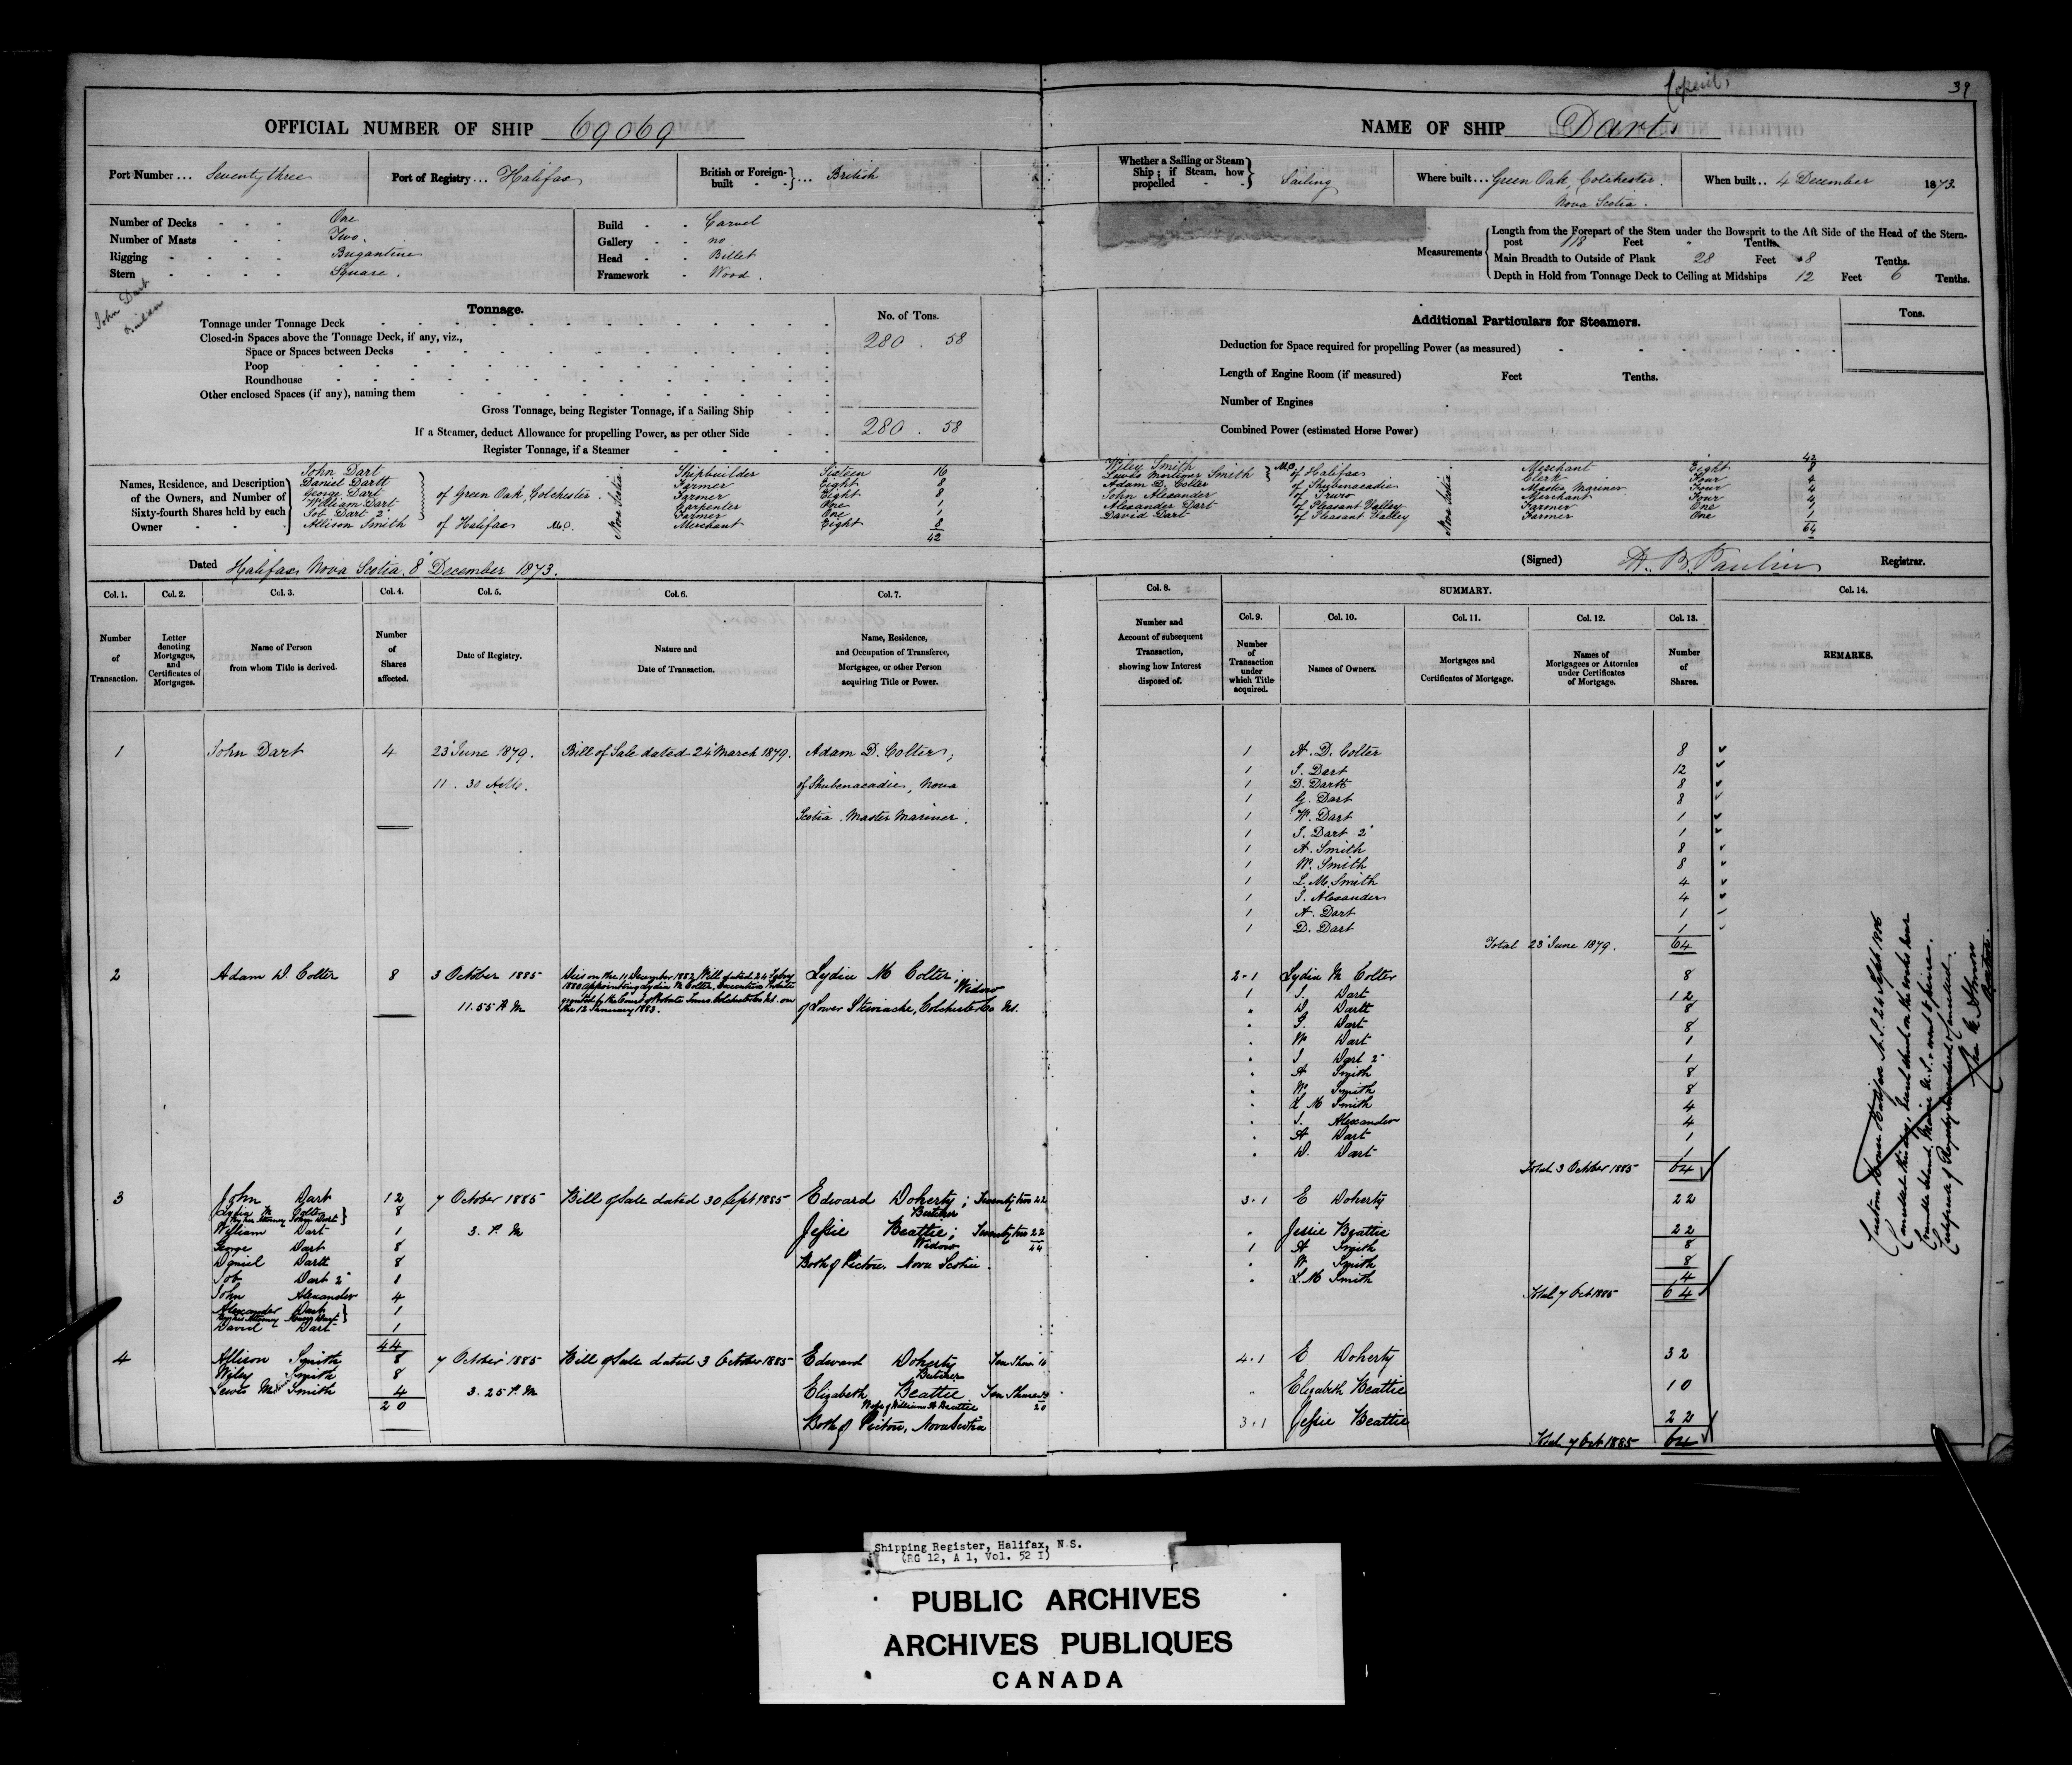 Copied,
39
OFFICIAL NUMBER OF SHIP 69069
NAME OF SHIP Dart
Port Number ... Seventy three
Port of Registry ... Halifax
British or Foreign-built - - } ... British
Whether a Sailing or Steam Ship; if Steam, how propelled - - } Sailing
Where built ... Green Oak, Colchester, Nova Scotia.
When built .. 4 December 1873.
Number of Decks - - - One
Number of Masts - - Two.
Rigging - - - - Brigantine
Stern - - - - Square.
Build - - Carvel
Gallery - - no
Head - - Billet
Framework - Wood.
Measurements
Length from the Forepart of the Stem under the Bowsprit to the Aft Side of the Head of the Stern-
post 118 Feet " Tenths
Main Breadth to Outside of Plank 28 Feet 8 Tenths.
Depth in Hold from Tonnage Deck to Ceiling at Midships 12 Feet 6 Tenths.
John Dart
Builder
Tonnage.
No. of Tons.
Tonnage under Tonnage Deck
Closed-in Spaces above the Tonnage Deck, if any, viz.,
280 . 58
Space or Spaces between Decks
Poop
Roundhouse
Other enclosed Spaces (if any), naming them
Gross Tonnage, being Register Tonnage, if a Sailing Ship
280 . 58
If a Steamer, deduct Allowance for propelling Power, as per other Side
Register Tonnage, if a Steamer
Additional Particulars for Steamers.
Tons.
Deduction for Space required for propelling Power (as measured)
Length of Engine Room (if measured) Feet Tenths.
Number of Engines
Combined Power (estimated Horse Power)
Names, Residence, and Description of the Owners, and Number of Sixty-fourth Shares held by each Owner
John Dart Shipbuilder Sixteen 16
Daniel Dartt Farmer Eight 8
George Dart Farmer Eight 8
of Green Oak, Colchester. Nova Scotia
William Dart Carpenter One 1
Job Dart 2" Farmer One 1
Allison Smith of Halifax Merchant Eight 8
42
42
Wiley Smith Merchant Eight 8
Lewis Mortimer Smith of Halifax Clerk Four 4
Adam D. Colter of Shubenacadie Master Mariner Four 4
John Alexander of Truro Merchant Four 4
Alexander Dart of Pleasant Valley Farmer One 1
David Dart of Pleasant Valley Farmer One 1
Nova Scotia
64
Dated Halifax Nova Scotia. 8" December 1873.
(Signed) Registrar.
Col. 1. Col. 2. Col. 3. Col. 4. Col. 5. Col. 6. Col. 7.
Number of Transaction.
Letter denoting Mortgages, and Certificates of Mortgages.
Name of Person from whom Title is derived.
Number of Shares affected.
Date of Registry.
Nature and Date of Transaction.
Name, Residence, and Occupation of Transferee, Mortgagee, or other Person acquiring Title or Power.
Col. 8. SUMMARY. Col. 14.
Col. 9. Col. 10. Col. 11. Col. 12. Col. 13.
Number and Account of subsequent Transaction, showing how Interest disposed of.
Number of Transaction under which Title acquired.
Names of Owners.
Mortgages and Certificates of Mortgage.
Names of Mortgagees or Attornies under Certificates of Mortgage.
Number of Shares.
REMARKS.
1 John Dart 4 23" June 1879. Bill of Sale dated 24" March 1879. Adam D. Colter,
11 . 30 A.M. of Shubenacadie, Nova
Scotia. Master Mariner.
1 A. D. Colter 8
1 J. Dart 12
1 D. Dartt 8
1 G. Dart 8
1 W. Dart 1
1 J. Dart 2" 1
1 A. Smith 8
1 W. Smith 8
1 L. M. Smith 4
1 J. Alexander 4
1 A. Dart 1
1 D. Dart 1
Total 23" June 1879. 64
2 Adam D. Colter 8 3 October 1885 Died on the 11 December 1882, Will dated 24
1880 appointing Lydia M Colter, Executrix Probate
granted by the Court of Probate Truro Colchester Co NS. on
the 12 January 1883.
11.55 A M
Lydia M Colter, Widow
of Lower Stewiacke, Colchester Co NS.
2.1 Lydia M Colter 8
1 J. Dart 12
" D Dartt 8
" G. Dart 8
" W Dart 1
" J Dart 2" 1
" A Smith 8
" W Smith 8
" L M Smith 4
" J. Alexander 4
" A Dart 1
" D. Dart 1
Total 3 October 1885 64
3 John Dart 12 7 October 1885 Bill of Sale dated 30 Sept 1885 Edward Doherty; Twenty two 22
Lydia M Colter 8 Butcher
by her Attorney John Dart
William Dart 1 3. P. M Jessie Beattie; Twenty two 22
George Dart 8 Widow 44
Daniel Dartt 8 Both of Pictou. Nova Scotia
Job Dart 2" 1
John Alexander 4
Alexander Dart 1
by his Attorney
David Dart 1
44
3.1 E Doherty 22
" Jessie Beattie 22
1 A Smith 8
" W Smith 8
" L M Smith 4
Total 7 Oct 1885 64
4 Allison Smith 8 7 October 1885 Bill of Sale dated 3 October 1885 Edward Doherty Ten Shares 10
Wiley Smith 8 Butcher
Lewis Mor Smith 4 3. 25 P. M Elizabeth Beattie Ten Shares 10
20 Wife of William H Beattie 20
Both of Pictou, Nova Scotia
4.1 E Doherty 32
" Elizabeth Beattie 10
3.1 Jessie Beattie 22
Total 7 Oct 1885 64
Custom House Halifax N.S. 26 Sept 1886
Cancelled this day, Vessel struck on the rocks near
Island, Maine U.S. & went to pieces.
Certificate of Registry & cancelled.
Shipping Register, Halifax, N.S.
(RG 12, A 1, Vol. 52 I)
PUBLIC ARCHIVES
ARCHIVES PUBLIQUES
CANADA